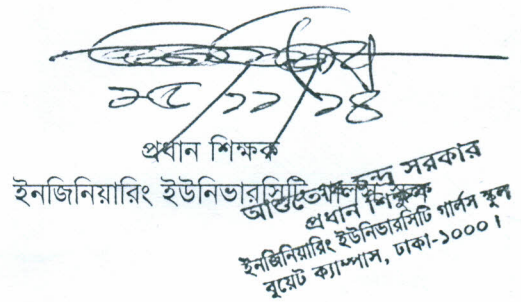 ১৫ ১১ ১৪
প্রধান শিক্ষক
ইনজিনিয়ারিং ইউনিভারসিটি
চন্দ্র সরকার
প্রধান শিক্ষক
ইনজিনিয়ারিং ইউনিভারসিটি গার্লস স্কুল
বুয়েট ক্যাম্পাস, ঢাকা-১০০০।